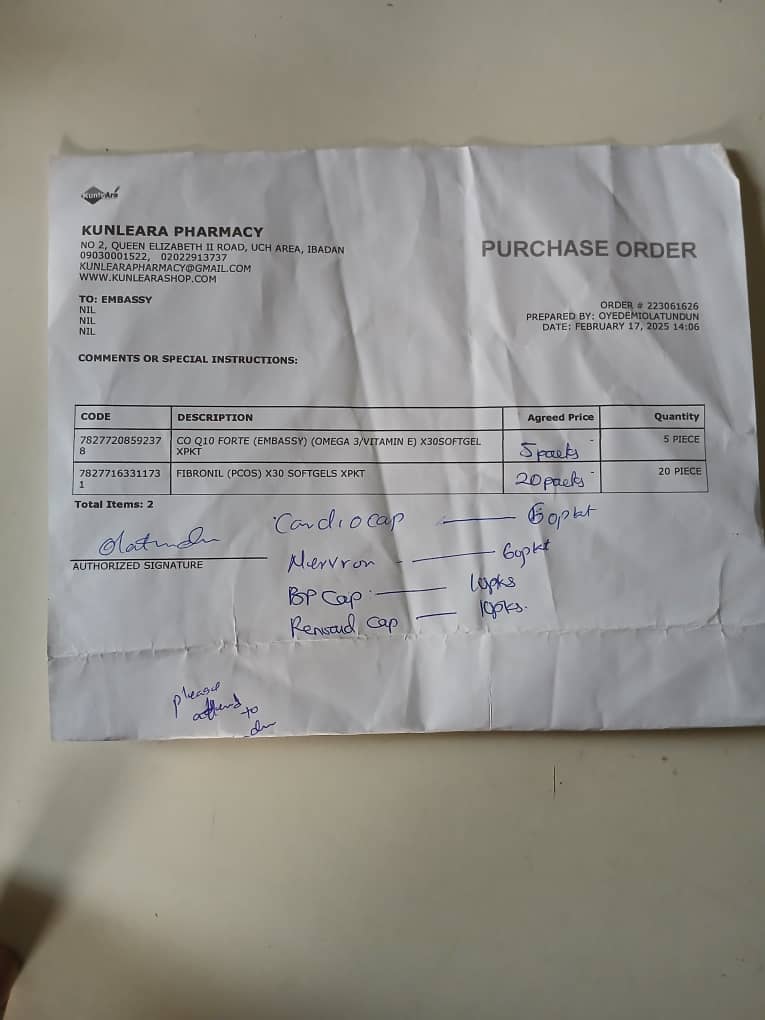 KunleAra
KUNLEARA PHARMACY
NO 2, QUEEN ELIZABETH II ROAD, UCH AREA, IBADAN
09030001522, 02022913737
KUNLEARAPHARMACY@GMAIL.COM
WWW.KUNLEARASHOP.COM
PURCHASE ORDER
TO: EMBASSY
NIL
NIL
NIL
ORDER # 223061626
PREPARED BY: OYEDEMIOLATUNDUN
DATE: FEBRUARY 17, 2025 14:06
COMMENTS OR SPECIAL INSTRUCTIONS:
CODE DESCRIPTION Agreed Price Quantity
7827720859237 CO Q10 FORTE (EMBASSY) (OMEGA 3/VITAMIN E) X30SOFTGEL - 5 PIECE
8 XPKT 5packs
7827716331173 FIBRONIL (PCOS) X30 SOFTGELS XPKT - 20 PIECE
1 20packs
Total Items: 2
Cardiocap — 60pkt
Olatundu
AUTHORIZED SIGNATURE
Nervron — 60pkt
BP Cap — 10pks
Cap — 10pks.
please
attend
to